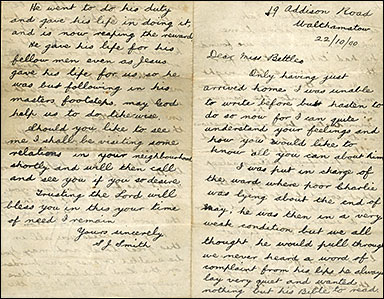 19 Addison Road
Walthamstow
22/10/00
Dear Miss Bettles
Only having just
arrived home, I was unable
to write before but hasten to
do so now for I can quite
understand your feelings and
how you would like to
know all you can about him
I was put in charge of
the ward where poor Charlie
was lying about the end of
May, he was then in a very
weak condition but we all
thought he would pull through
we never heard a word of
complaint from his lips he always
lay very quiet and wanted
nothing but his Bible to read
He went to do his duty
and gave his life in doing it,
and is now reaping the reward
He gave his life for his
fellow men even as Jesus
gave his life for us, so he
was but following in his
masters footsteps, may God
help us to do likewise.
Should you like to see
me I shall be visiting some
relations in your neighbourhood
shortly and will then call
and see you if you so desire
Trusting the Lord will
bless you in this your time
of need I remain
Yours sincerely
S J Smith